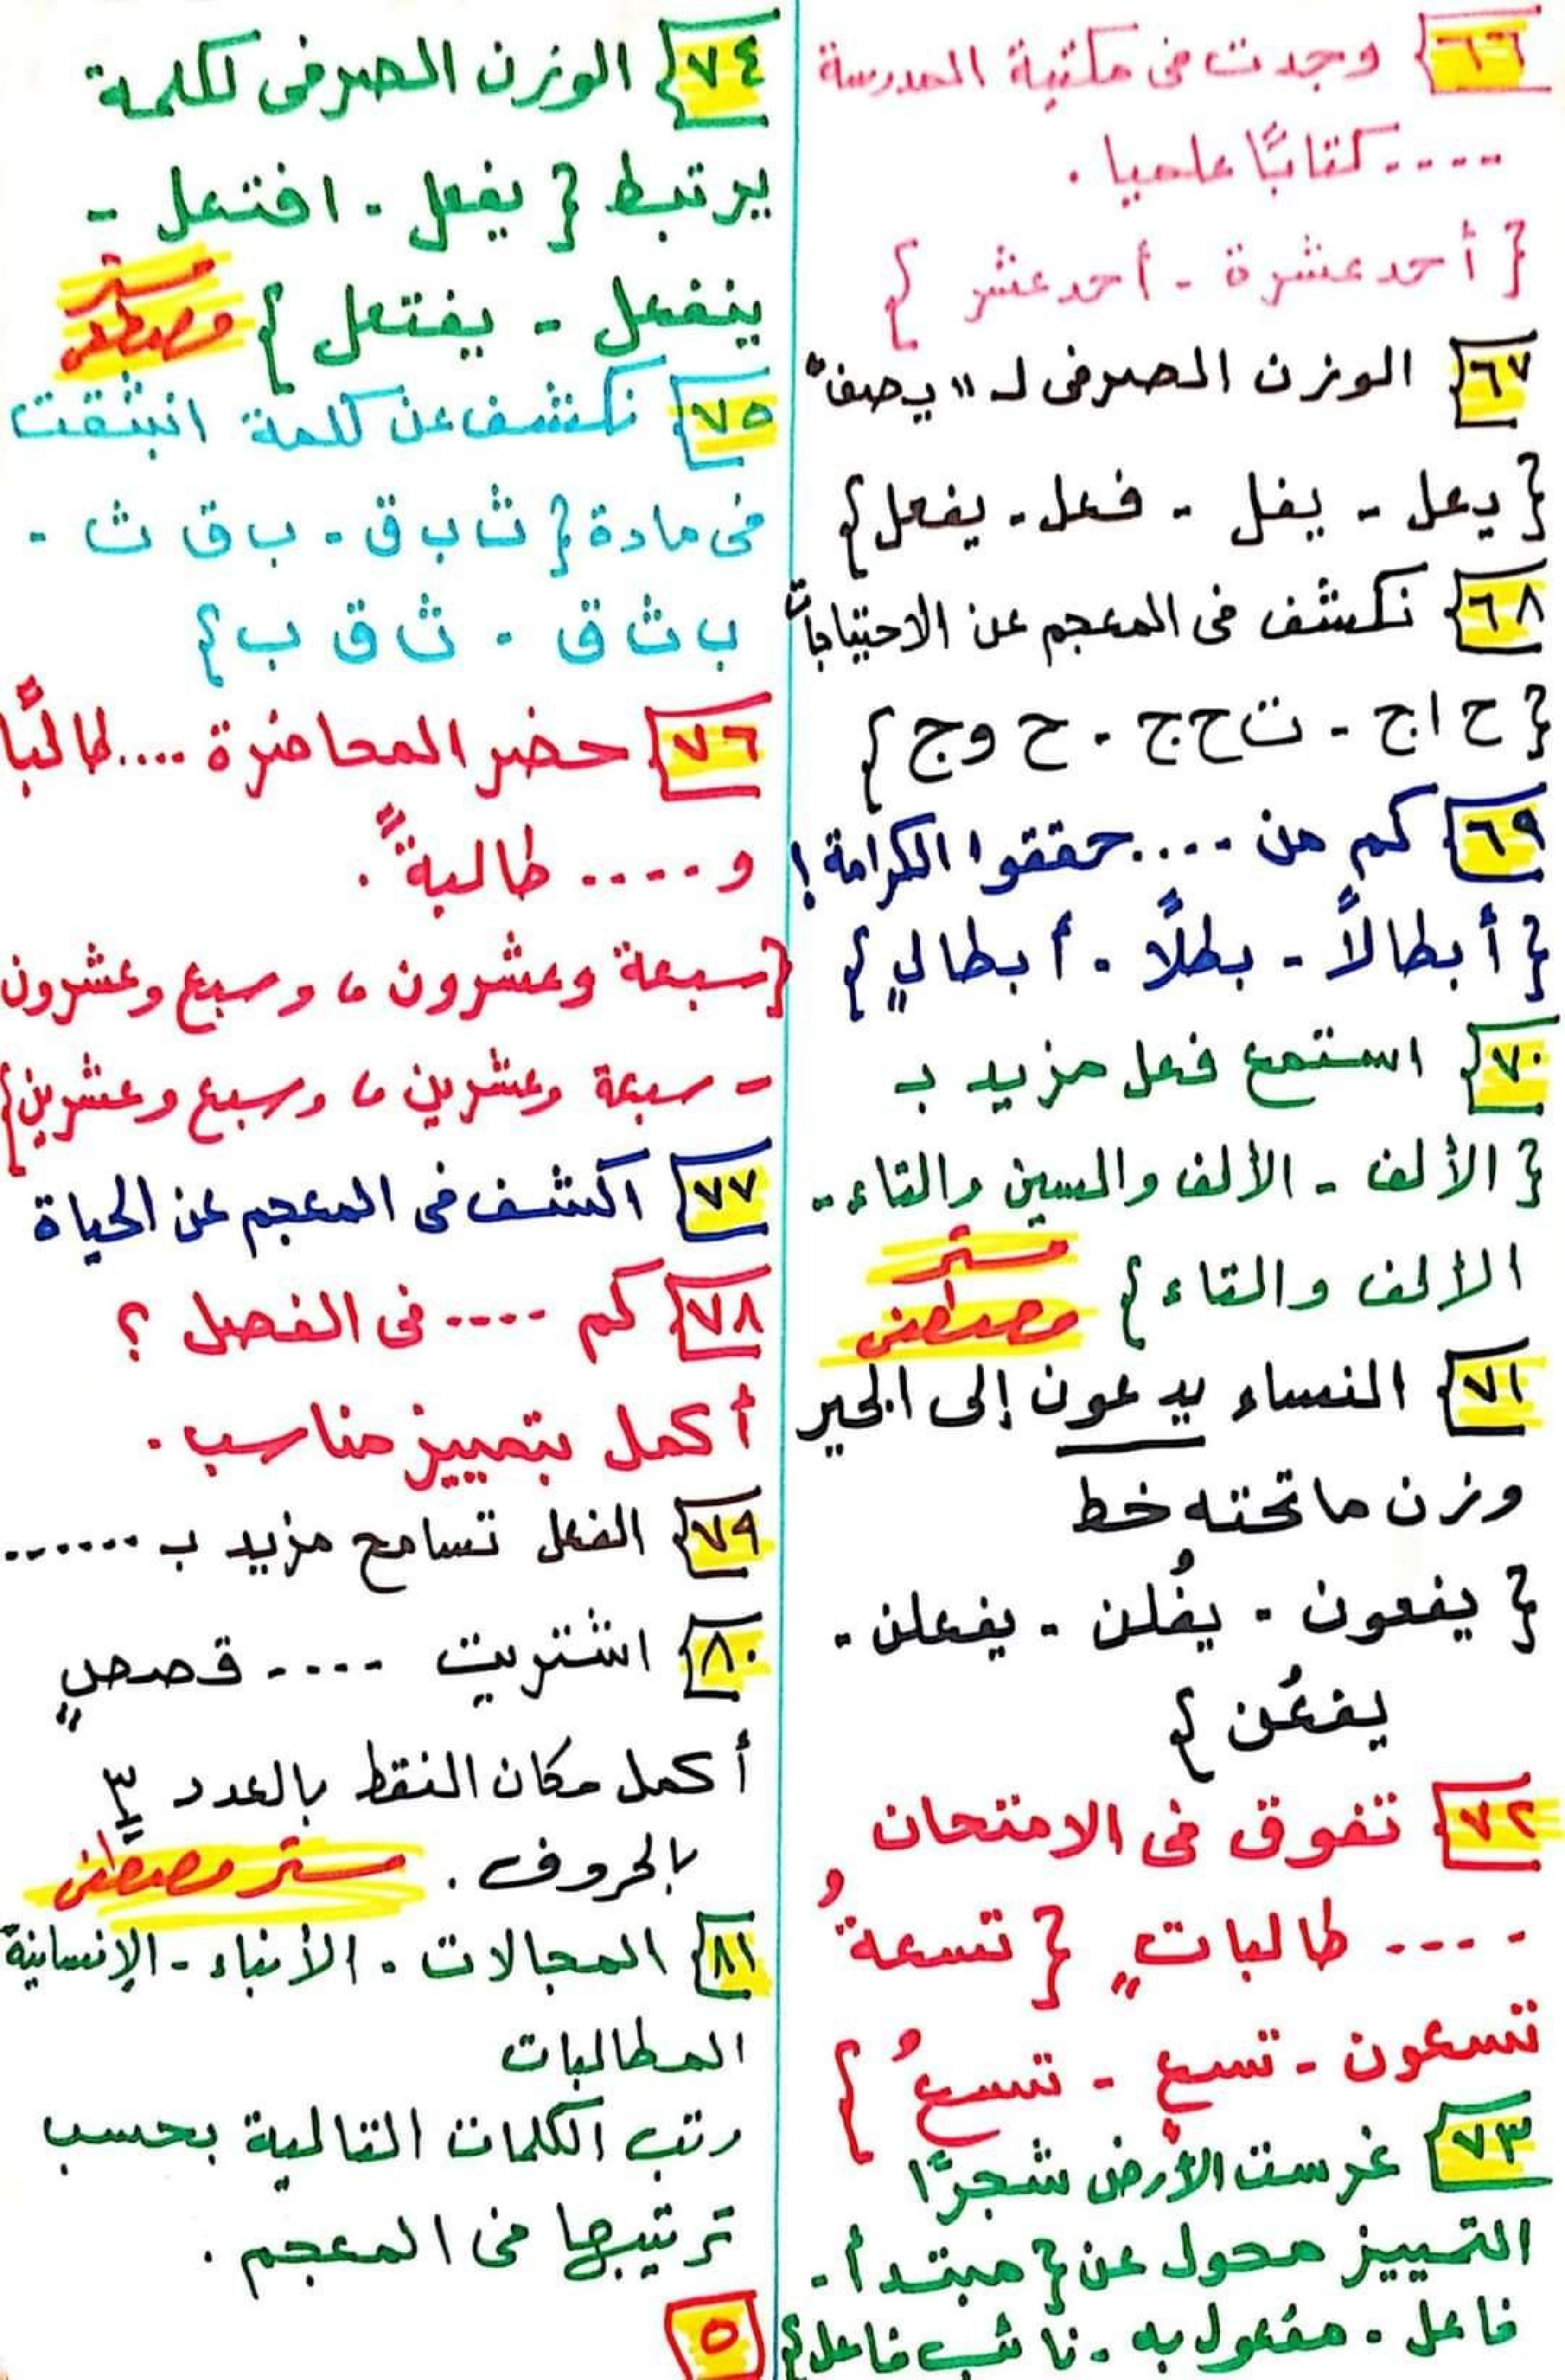 ٦٦ وجدت في مكتبة المدرسة
.... كتابًا علميا .
{ أحد عشرة - أحد عشر }
٦٧ الوزن الصرفى لـ "يصف"
{ يعل - يفل - فعل - يفعل }
٦٨ نكشف فى المعجم عن الاحتياجات
{ ح ا ج - ت ح ج - ح و ج }
٦٩ كم من .... حققوا الكرامة !
{ أبطالاً - بطلًا - أبطالٍ }
٧٠ استمع فعل مزيد بـ
{ الألف - الألف والسين والتاء -
الألف والتاء }
مستر
مصطفى
٧١ النساء يدعون إلى الخير
وزن ما تحته خط
{ يفعون - يفُلن - يفعلن -
يفعُن }
٧٢ تفوق فى الامتحان
.... طالباتٍ { تسعةُ
تسعون - تسعٍ - تسعُ }
٧٣ غرست الأرض شجرًا
التمييز محول عن { مبتدأ -
فاعل - مفعول به - نائب فاعل }
٧٤ الوزن الصرفى لكلمة
يرتبط { يفعل - افتعل -
ينفعل - يفتعل }
مستر
مصطفى
٧٥ نكشف عن كلمة انبثقت
فى مادة { ث ب ق - ب ق ث -
ب ث ق - ث ق ب }
٧٦ حضر المحاضرة .... طالبًا
و .... طالبةً .
{ سبعة وعشرون ، وسبع وعشرون
- سبعة وعشرين ، وسبع وعشرين }
٧٧ اكشف فى المعجم عن الحياة
٧٨ كم .... فى الفصل ؟
أكمل بتمييز مناسب .
٧٩ الفعل تسامح مزيد ب ......
٨٠ اشتريت .... قصصٍ
أكمل مكان النقط بالعدد ٣
بالحروف .
مستر مصطفى
٨١ المجالات - الأنباء - الإنسانية
المطالبات
رتب الكلمات التالية بحسب
ترتيبها فى المعجم .
٥